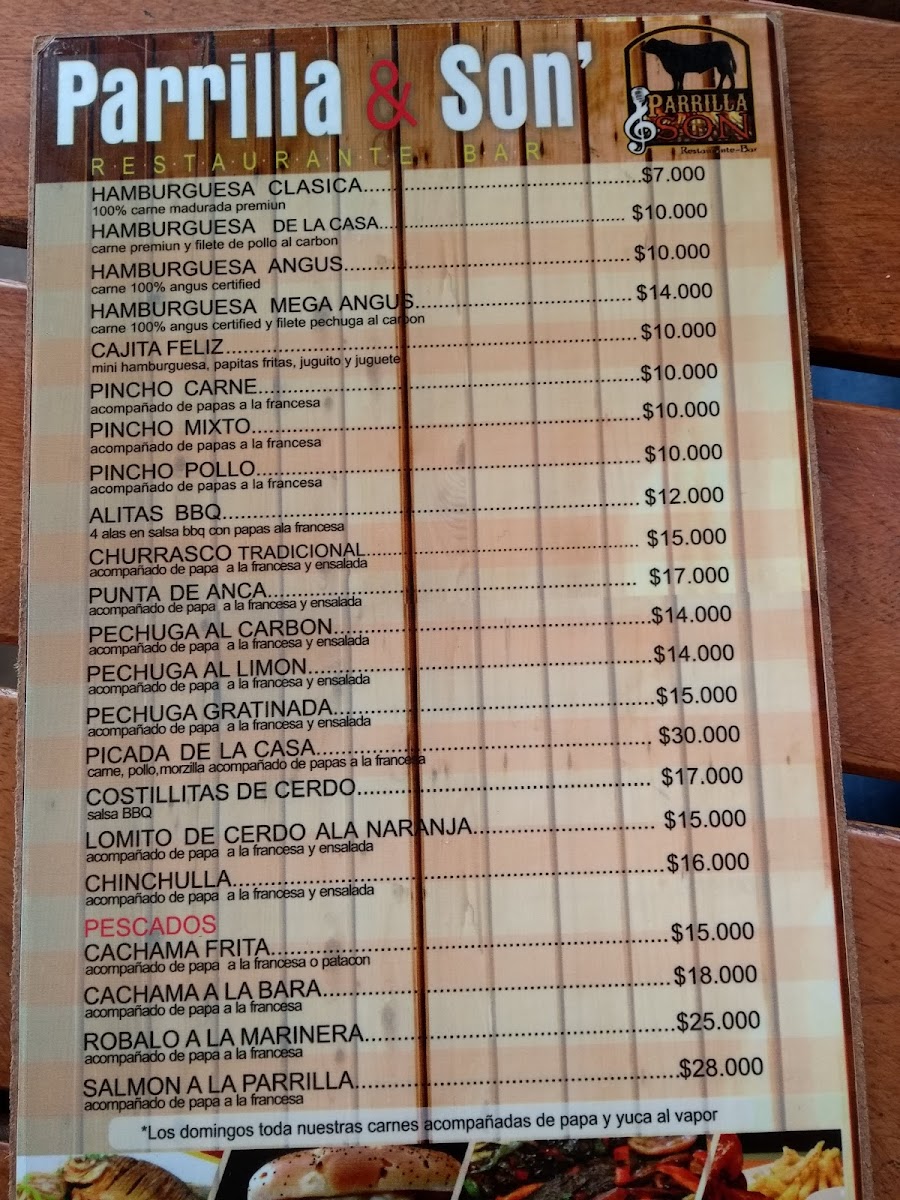 Parrilla & Son'
PARRILLA
SON
Restaurante-Bar
RESTAURANTE BAR
HAMBURGUESA CLASICA $7.000
100% carne madurada premiun
HAMBURGUESA DE LA CASA $10.000
carne premiun y filete de pollo al carbon
HAMBURGUESA ANGUS $10.000
carne 100% angus certified
HAMBURGUESA MEGA ANGUS $14.000
carne 100% angus certified y filete pechuga al carbon
CAJITA FELIZ $10.000
mini hamburguesa, papitas fritas, juguito y juguete
PINCHO CARNE $10.000
acompañado de papas a la francesa
PINCHO MIXTO $10.000
acompañado de papas a la francesa
PINCHO POLLO $10.000
acompañado de papas a la francesa
ALITAS BBQ $12.000
4 alas en salsa bbq con papas ala francesa
CHURRASCO TRADICIONAL $15.000
acompañado de papa a la francesa y ensalada
PUNTA DE ANCA $17.000
acompañado de papa a la francesa y ensalada
PECHUGA AL CARBON $14.000
acompañado de papa a la francesa y ensalada
PECHUGA AL LIMON $14.000
acompañado de papa a la francesa y ensalada
PECHUGA GRATINADA $15.000
acompañado de papa a la francesa y ensalada
PICADA DE LA CASA $30.000
carne, pollo,morzilla acompañado de papas a la francesa
COSTILLITAS DE CERDO $17.000
salsa BBQ
LOMITO DE CERDO ALA NARANJA $15.000
acompañado de papa a la francesa y ensalada
CHINCHULLA $16.000
acompañado de papa a la francesa y ensalada
PESCADOS
CACHAMA FRITA $15.000
acompañado de papa a la francesa o patacon
CACHAMA A LA BARA $18.000
acompañado de papa a la francesa
ROBALO A LA MARINERA $25.000
acompañado de papa a la francesa
SALMON A LA PARRILLA $28.000
acompañado de papa a la francesa
*Los domingos toda nuestras carnes acompañadas de papa y yuca al vapor